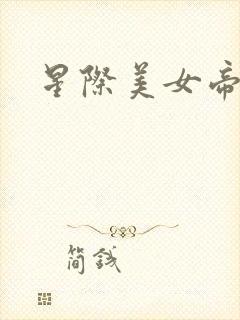 星際美女帝
簡錢